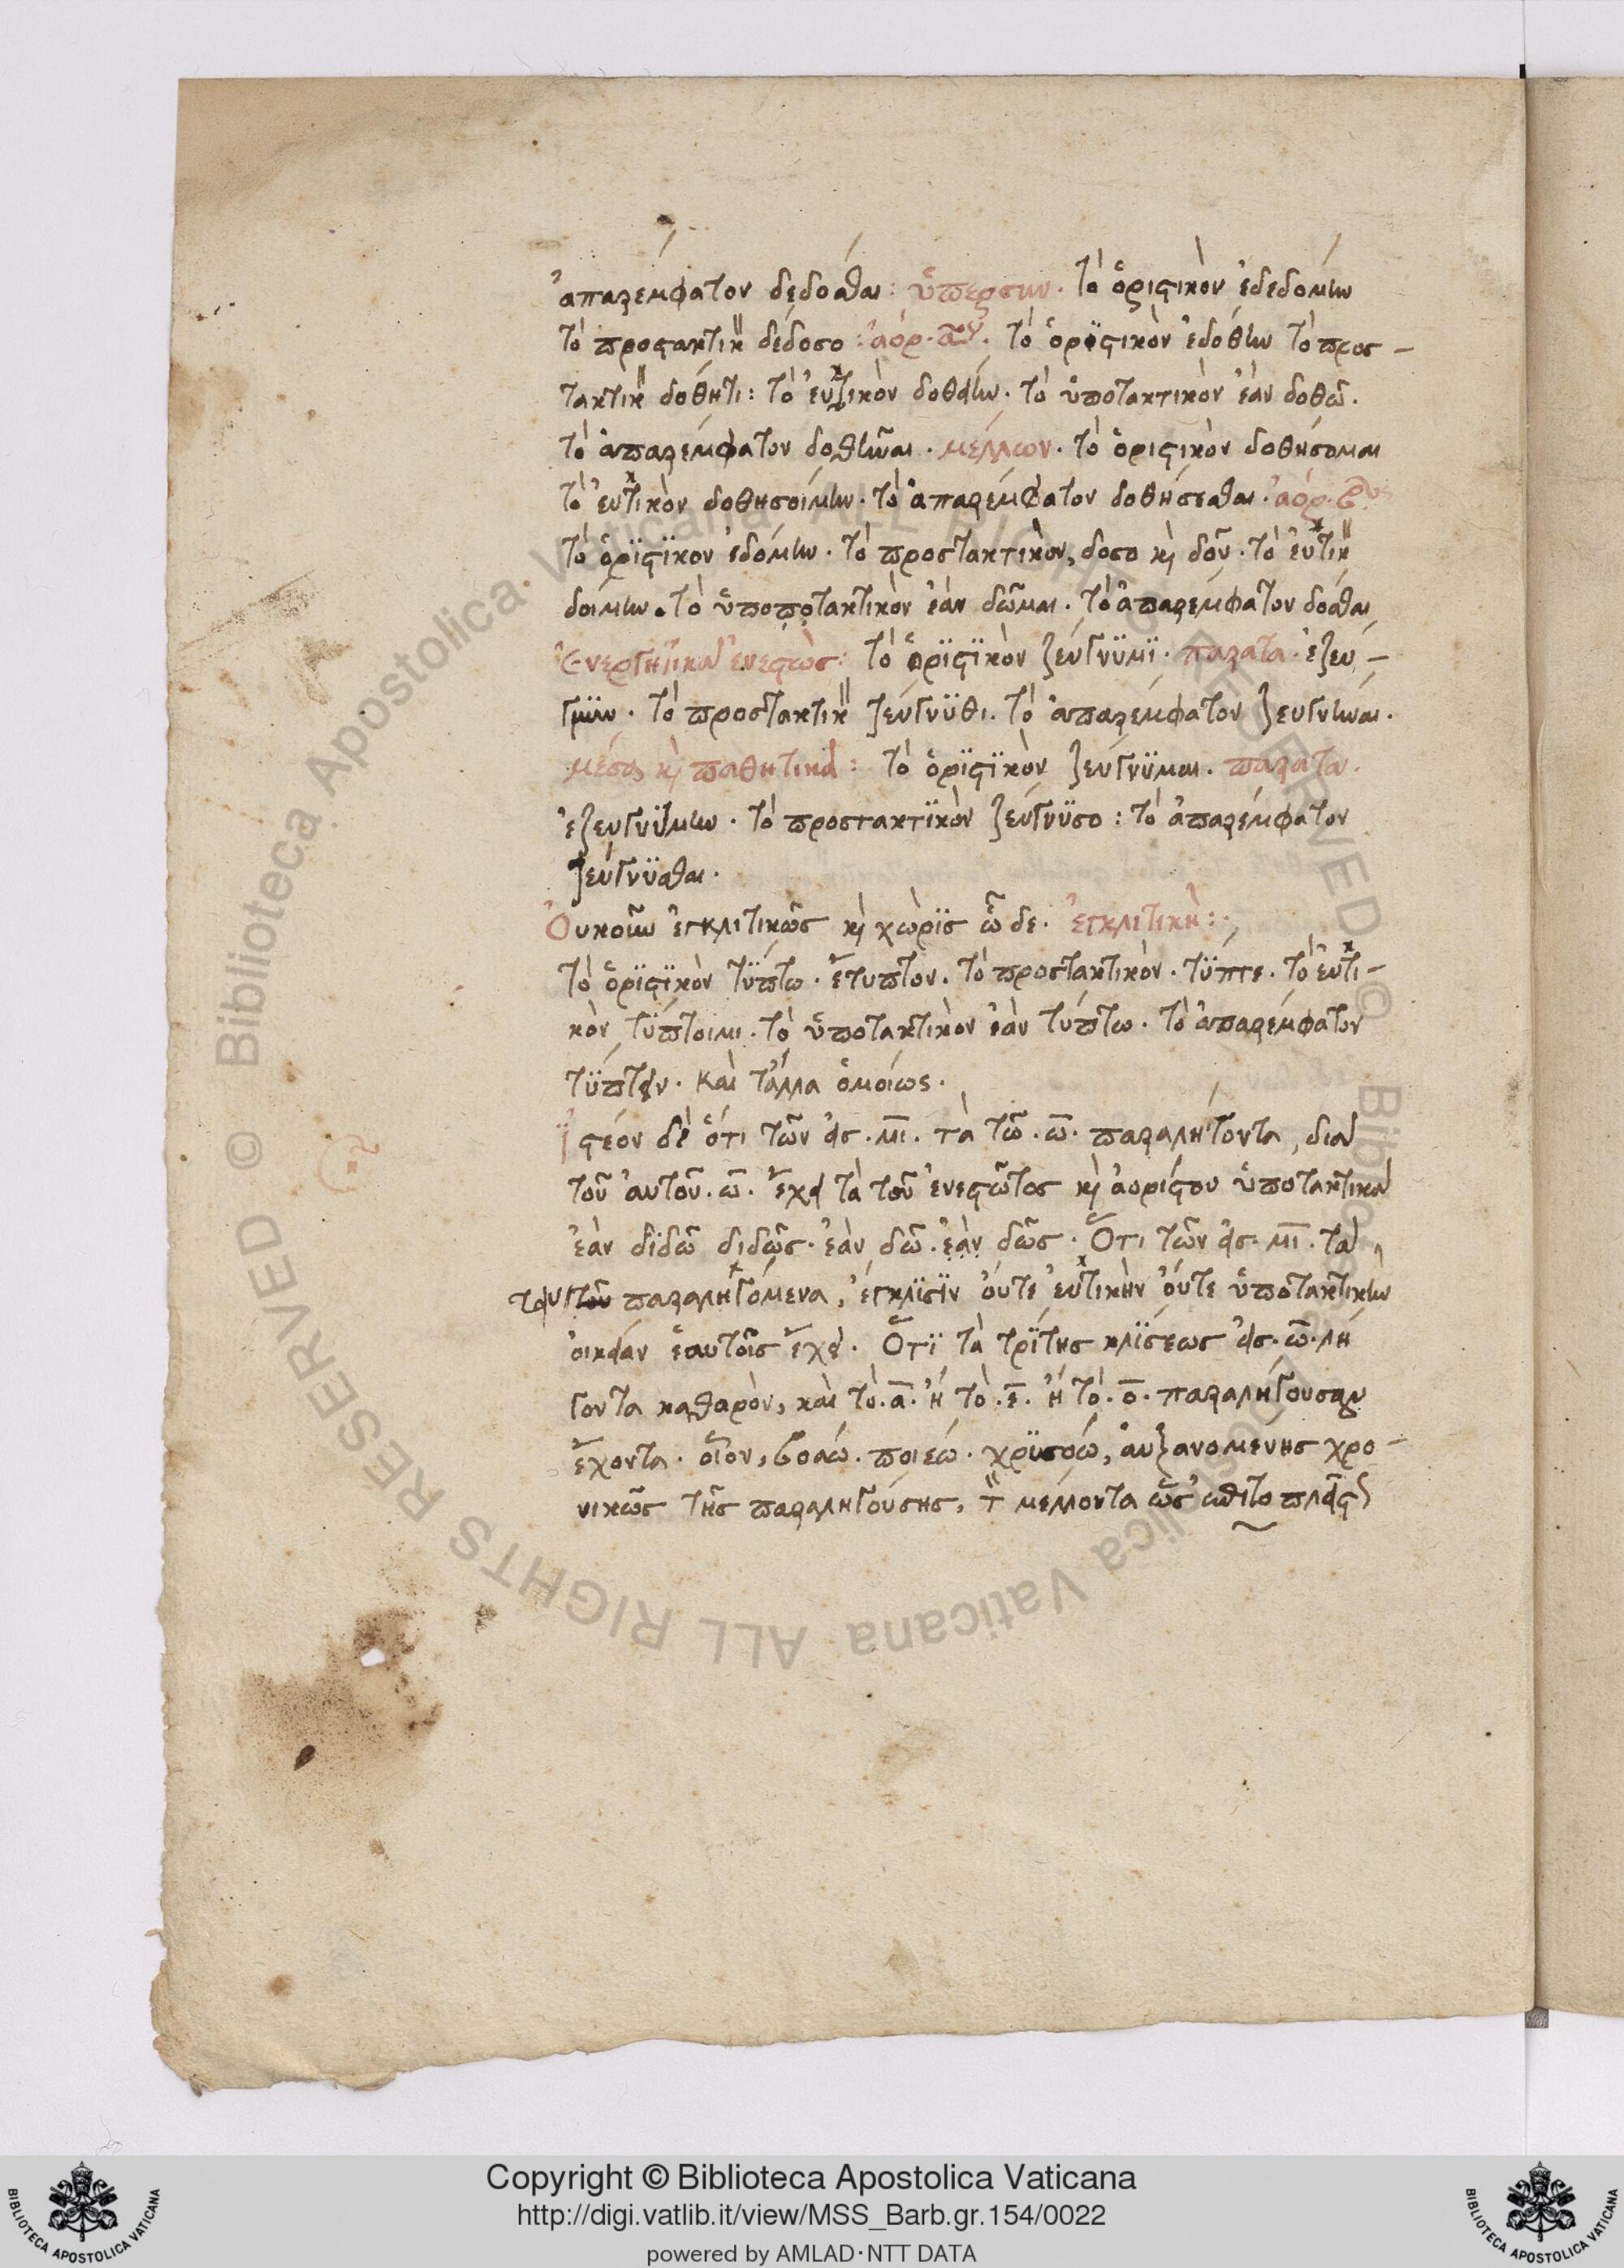 ἀπαρέμφατον δεδόσθαι: ὑπερσυν. τὸ ὁριστικὸν ἐδεδόμην
τὸ προστακτικ δέδοσο: ἀόρ. α. τὸ ὁριστικὸν ἐδόθην τὸ προσ-
τακτικ δόθητι: τὸ εὐκτικὸν δοθείην. τὸ ὑποτακτικὸν ἐὰν δοθῶ.
τὸ ἀπαρέμφατον δοθῆναι. μέλλων. τὸ ὁριστικὸν δοθήσομαι
τὸ εὐκτικὸν δοθησοίμην. τὸ ἀπαρέμφατον δοθήσεσθαι. ἀόρ. β
τὸ ὁρϊστϊκον ἐδόμην. τὸ προστακτικὸν, δοσο κὶ δοῦ. τὸ εὐκτικ
δοίμην. τὸ ὑποποτακτικὸν ἐὰν δῶμαι. τὸ ἀπαρέμφατον δόσθαι
Ἐνεργητικὰ ἐνεστὼς: τὸ ὁρϊστϊκὸν ζεύγνϋμϊ. παρατα. ἐζεύ-
γνϋν. τὸ προστακτικ ζεύγνϋθι. τὸ ἀπαρέμφατον ζευγνῦναι.
μέσα κὶ παθητικά: τὸ ὁρϊστϊκὸν ζεύγνϋμαι. παρατα.
ἐζευγνϋμην. τὸ προστακτϊκὸν ζεύγνϋσο: τὸ ἀπαρέμφατον
ζεύγνϋσθαι.
Ὀυκοῦν ἐγκλιτικῶς κὶ χωρϊς ὧδε. ἐγκλιτικὴ:
τὸ ὁρϊστϊκὸν τϋπτω. ἔτυπτον. τὸ προστακτικὸν. τϋπτε. τὸ εὐκτι-
κὸν τϋπτοιμι. τὸ ὑποτακτικὸν ἐὰν τύπτω. τὸ ἀπαρέμφατον
τϋπτειν. Καὶ τἄλλα ὁμοίως.
Ϊστέον δὲ ὅτι τῶν εἰς. μι. τὰ τῶ. ω. παραλήγοντα, διὰ
τοῦ αὐτοῦ. ω. ἔχει τὰ τοῦ ἐνεστῶτος κὶ ἀορίστου ὑποτακτικὰ
ἐὰν δϊδῶ διδῶς. ἐὰν δῶ. ἐὰν δῶς. Ὅτι τῶν εἰς. μι. τὰ
παραληγόμενα, ἔγκλϊσϊν ὄυτε εὐκτικὴν ὄυτε ὑποτακτικὴν
οἰκείαν ἑαυτοῖς ἔχει. Ὅτϊ τὰ τρϊτης κλϊσεως εἰς. ω. λή
γοντα καθαρὸν, καὶ τὸ. α. ἢ τὸ. ε. ἢ τὸ. ο. παραλήγουσαν
ἔχοντα. οἷον, βοάω. ποιέω. χρϋσόω, αὐξανομένης χρο-
νικῶς τῆς παραληγούσης, τ μέλλοντα ὡς